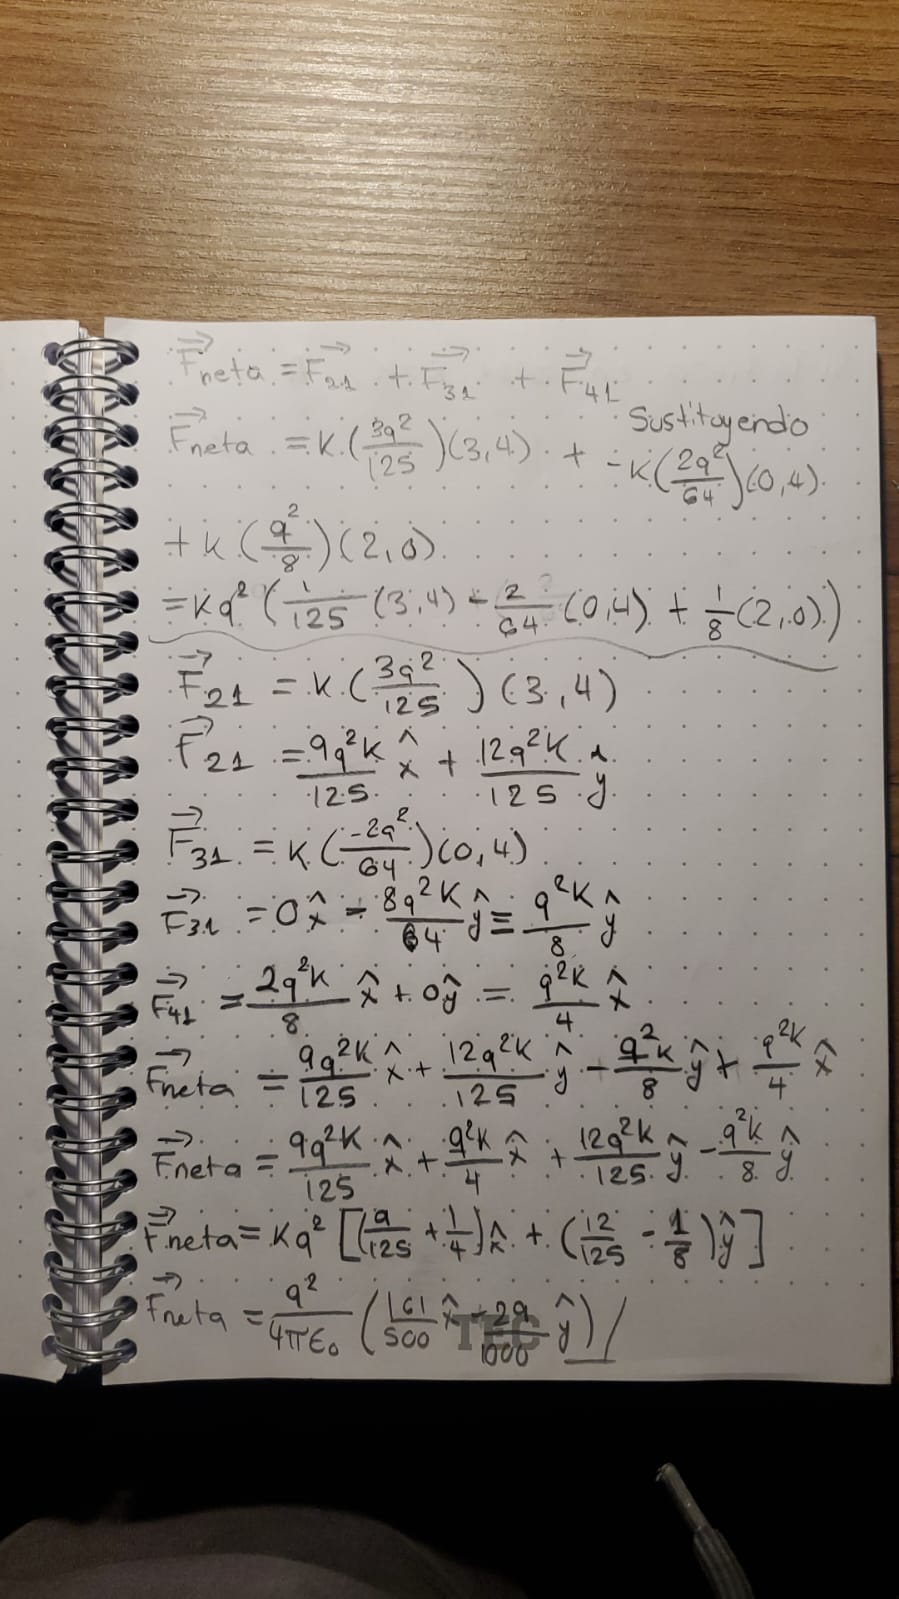 F⃗neta = F⃗21 + F⃗31 + F⃗41
Sustituyendo
F⃗neta = K(3q²/125)(3,4) + -K(2q²/64)(0,4)
+ K(q²/8)(2,0)
= Kq²(1/125(3,4) - 2/64(0,4) + 1/8(2,0))
F⃗21 = K(3q²/125)(3,4)
F⃗21 = 9q²K/125 x̂ + 12q²K/125 ŷ
F⃗31 = K(-2q²/64)(0,4)
F⃗31 = 0x̂ - 8q²K/64 ŷ = q²K/8 ŷ
F⃗41 = 2q²K/8 x̂ + 0ŷ = q²K/4 x̂
F⃗neta = 9q²K/125 x̂ + 12q²K/125 ŷ - q²K/8 ŷ + q²K/4 x̂
F⃗neta = 9q²K/125 x̂ + q²K/4 x̂ + 12q²K/125 ŷ - q²K/8 ŷ
F⃗neta = Kq²[(9/125 + 1/4)x̂ + (12/125 - 1/8)ŷ]
F⃗neta = q²/4πε₀ (161/500 x̂ - 29/1000 ŷ)
TEC